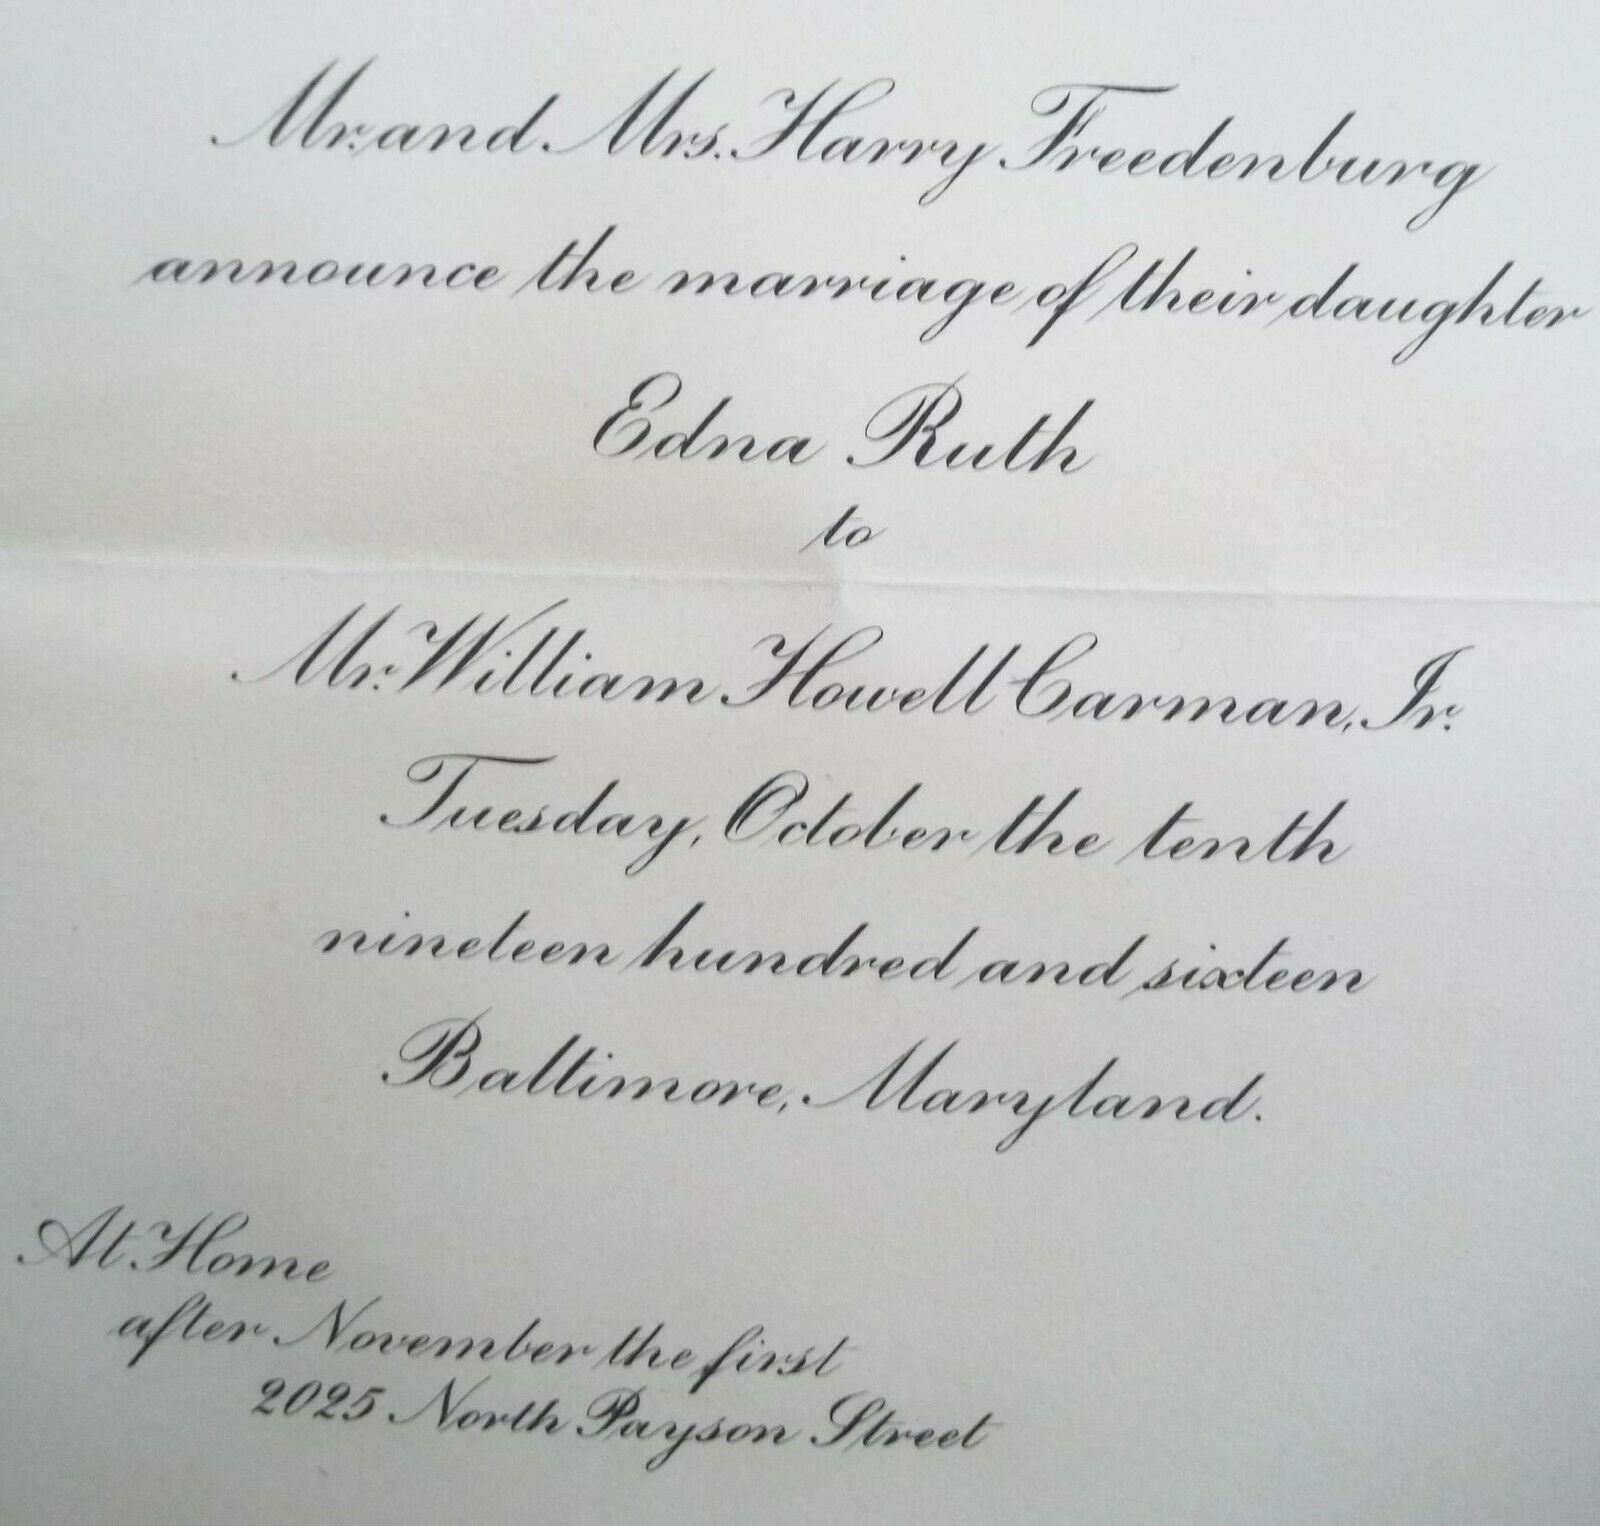 Mr. and Mrs. Harry Freedenburg
announce the marriage of their daughter
Edna Ruth
to
Mr. William Howell Carman, Jr.
Tuesday, October the tenth
nineteen hundred and sixteen
Baltimore, Maryland.
At Home
after November the first
2025 North Payson Street